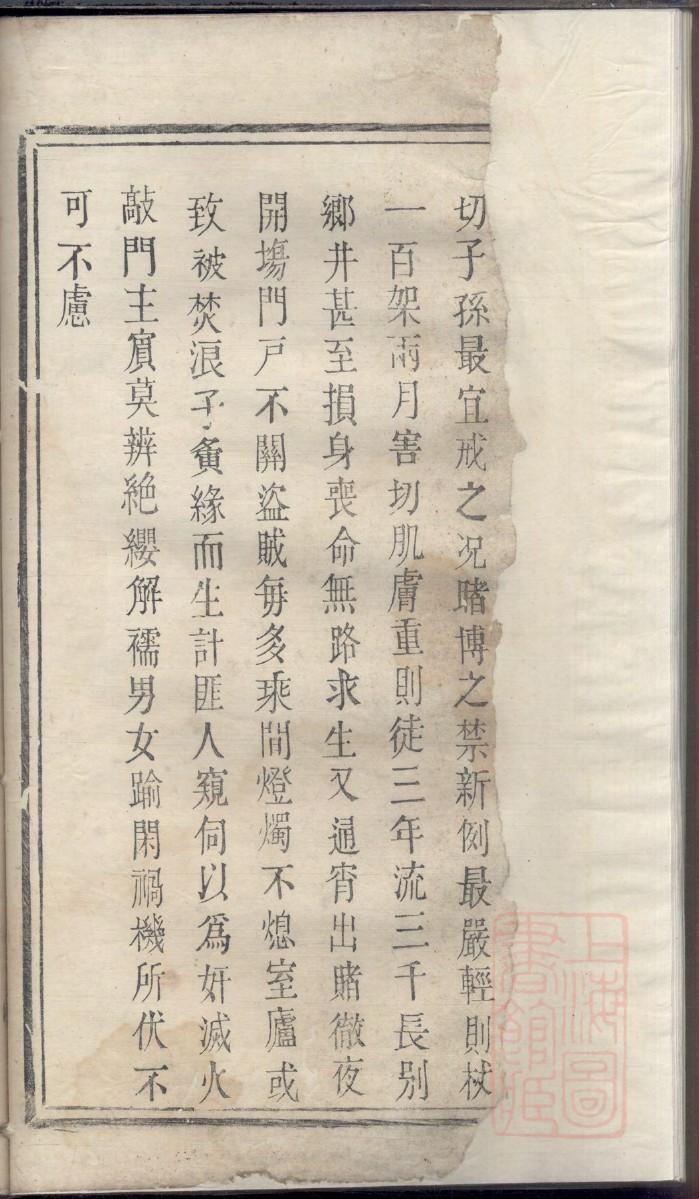 切子孫最宜戒之况賭博之禁新例最嚴輕則杖
一百架兩月害切肌膚重則徒三年流三千長别
鄉井甚至損身喪命無路求生又通宵出賭徹夜
開塲門戸不關盜賊每多乘間燈燭不熄室廬或
致被焚浪子夤緣而生計匪人窺伺以爲奸滅火
敲門主賓莫辨絶纓解襦男女踰閑禍機所伏不
可不慮
上海圖
書館